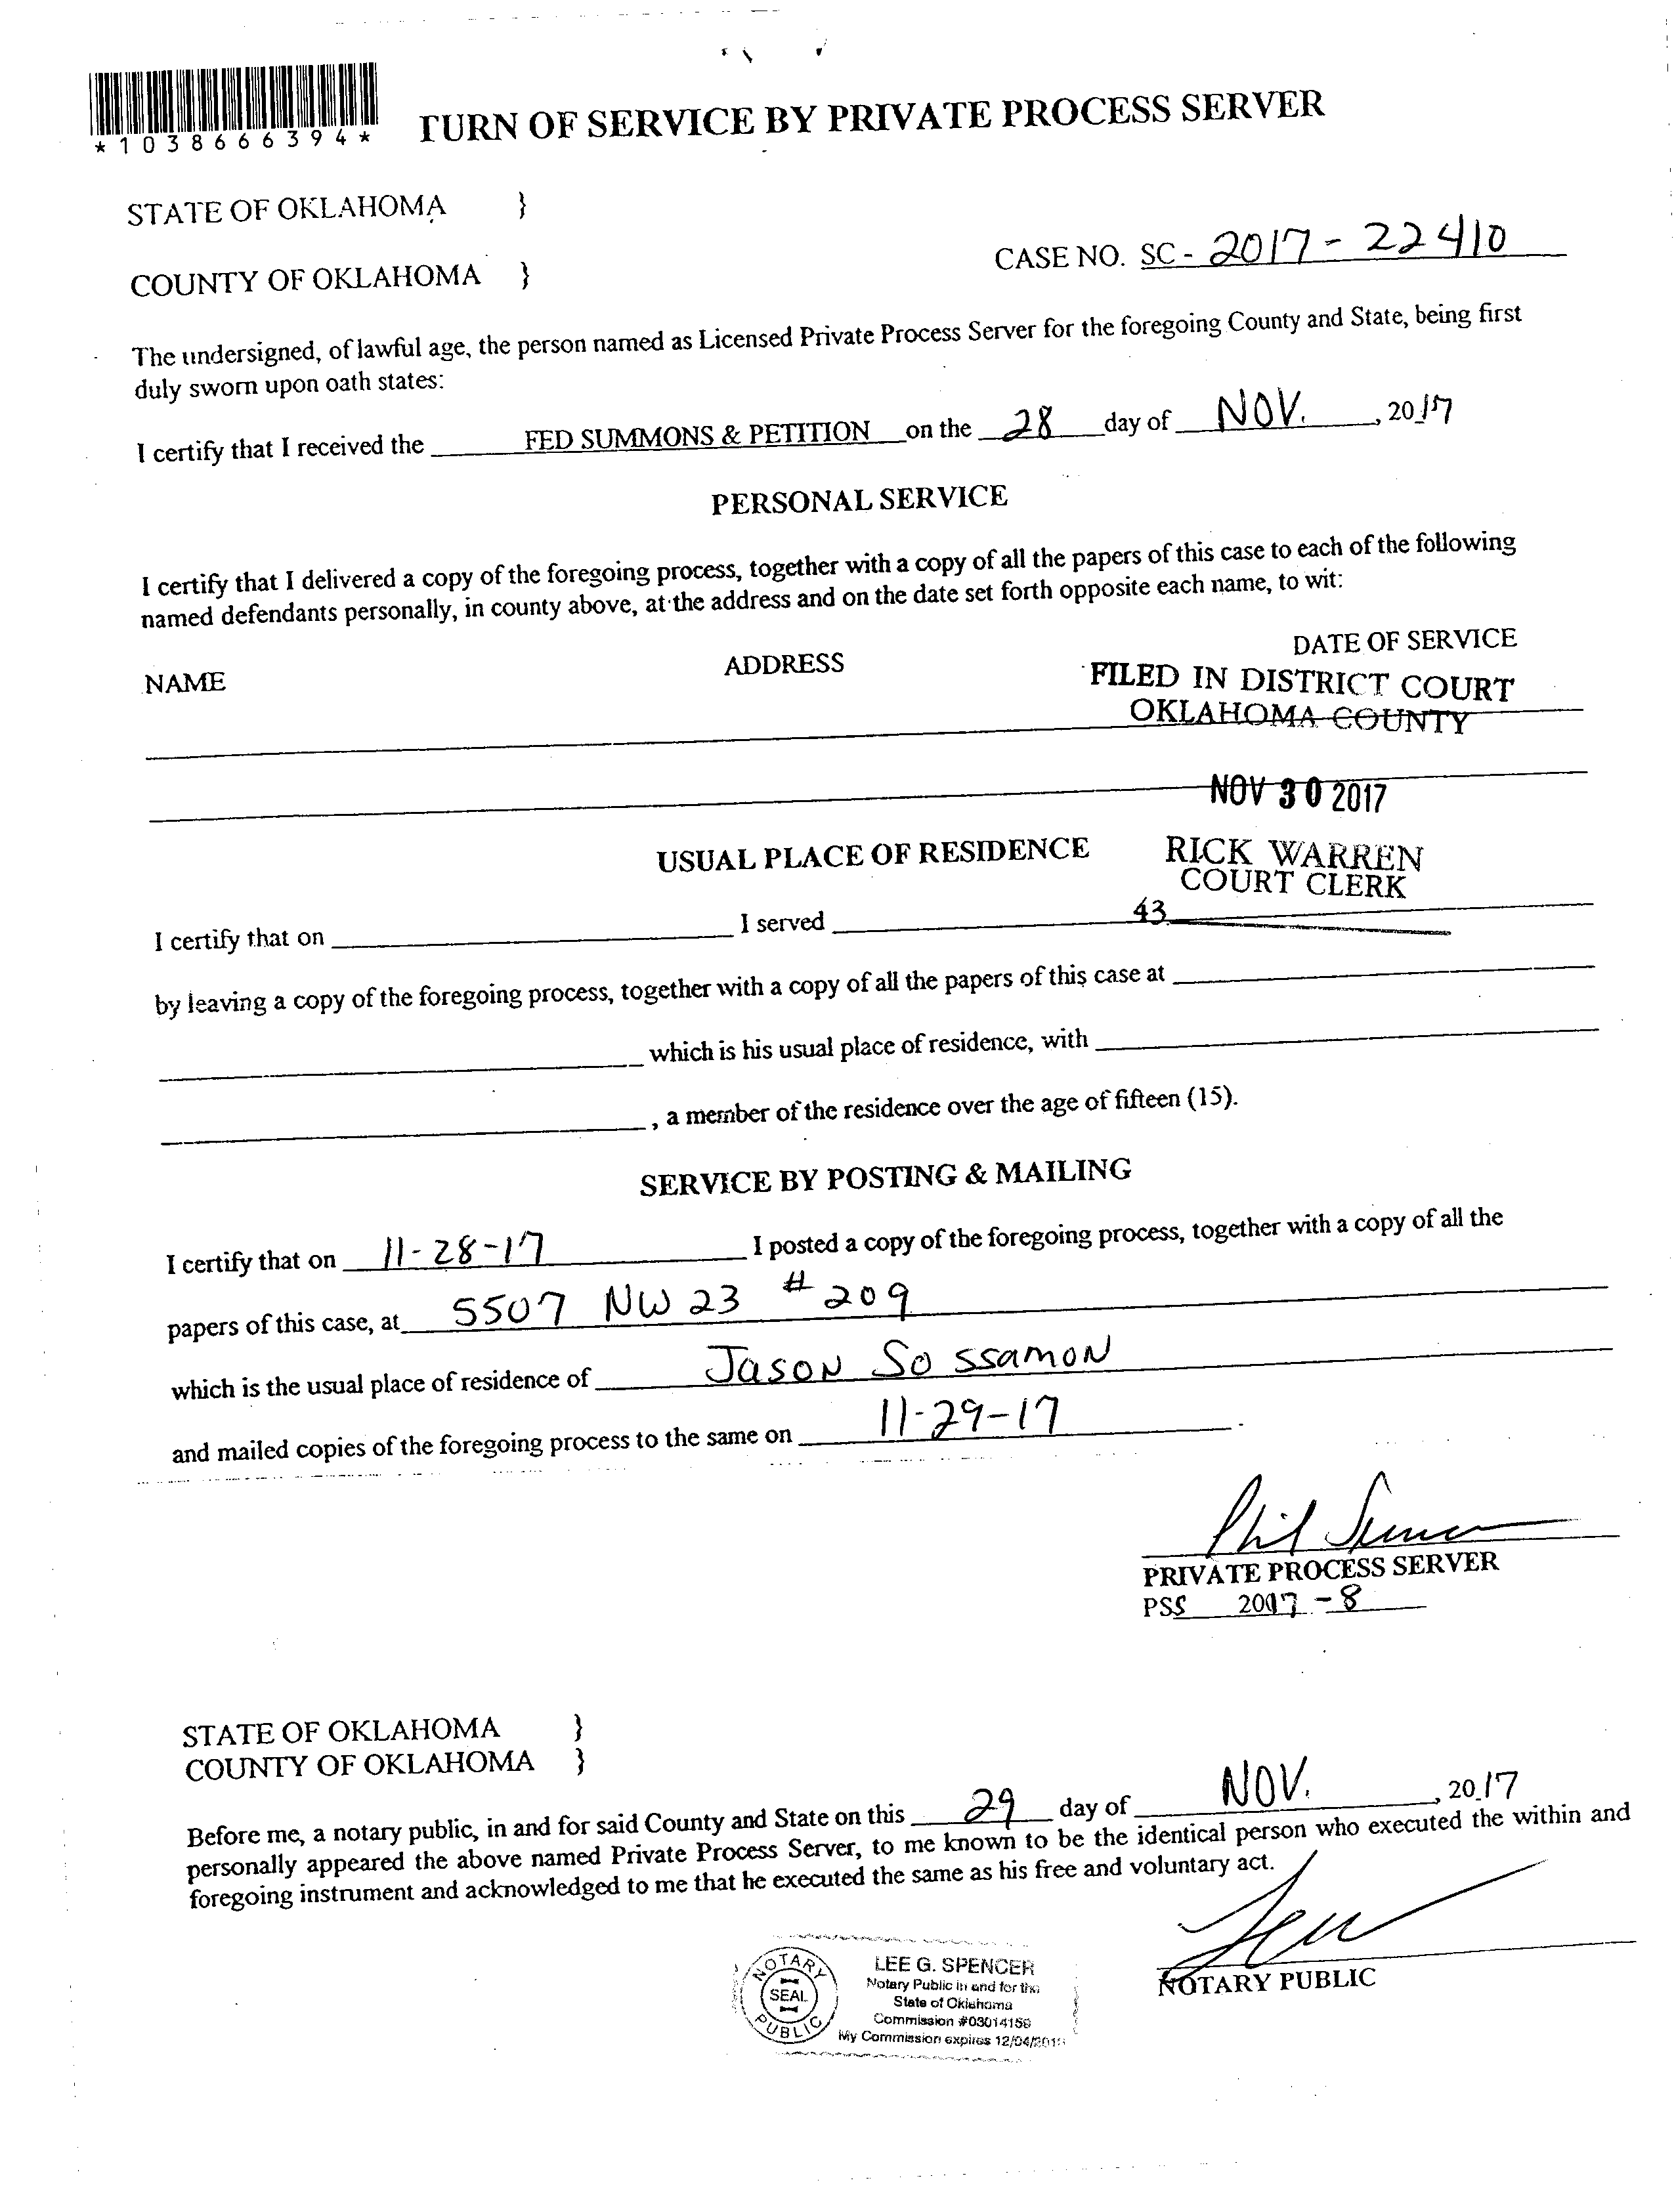 *1038666394*
TURN OF SERVICE BY PRIVATE PROCESS SERVER
STATE OF OKLAHOMA }
CASE NO. SC - 2017 - 22410
COUNTY OF OKLAHOMA }
The undersigned, of lawful age, the person named as Licensed Private Process Server for the foregoing County and State, being first
duly sworn upon oath states:
I certify that I received the FED SUMMONS & PETITION on the 28 day of NOV. , 2017
PERSONAL SERVICE
I certify that I delivered a copy of the foregoing process, together with a copy of all the papers of this case to each of the following
named defendants personally, in county above, at the address and on the date set forth opposite each name, to wit:
NAME ADDRESS DATE OF SERVICE
FILED IN DISTRICT COURT
OKLAHOMA COUNTY
NOV 30 2017
USUAL PLACE OF RESIDENCE
RICK WARREN
COURT CLERK
43
I certify that on I served
by leaving a copy of the foregoing process, together with a copy of all the papers of this case at
which is his usual place of residence, with
, a member of the residence over the age of fifteen (15).
SERVICE BY POSTING & MAILING
I certify that on 11-28-17 I posted a copy of the foregoing process, together with a copy of all the
papers of this case, at 5507 NW 23 # 209
which is the usual place of residence of Jason Sossamon
and mailed copies of the foregoing process to the same on 11-29-17 .
Phil
PRIVATE PROCESS SERVER
PSS 2017 - 8
STATE OF OKLAHOMA }
COUNTY OF OKLAHOMA }
Before me, a notary public, in and for said County and State on this 29 day of NOV. , 2017
personally appeared the above named Private Process Server, to me known to be the identical person who executed the within and
foregoing instrument and acknowledged to me that he executed the same as his free and voluntary act.
NOTARY PUBLIC
NOTARY
SEAL
PUBLIC
LEE G. SPENCER
Notary Public in and for the
State of Oklahoma
Commission #03014156
My Commission expires